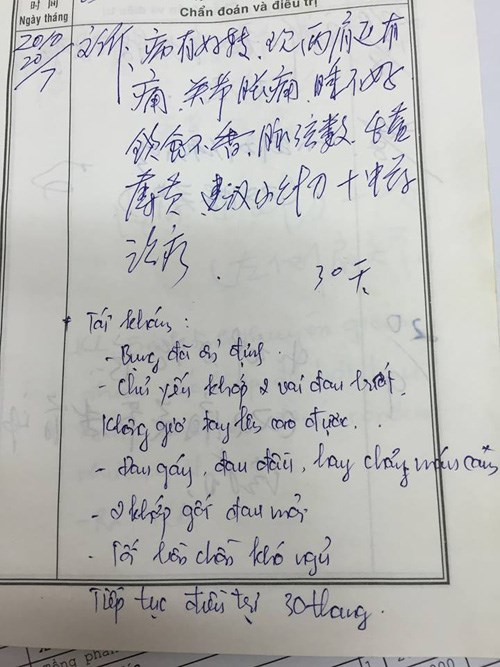 时间
Ngày tháng
Chẩn đoán và điều trị
2010
20/7
复诊、病有好转、现两肩还有
痛、关节胀痛、睡不好
饮食不香、脉弦数、舌苔
薄黄、建议小针刀十中药
治疗. 30天
Tái khám:
- Bụng đã ổn định.
- Chủ yếu khớp 2 vai đau buốt.
Không giơ tay lên cao được.
- Đau gáy, đau đầu, hay chảy máu cam
- 2 khớp gối đau mỏi
- Tối bồn chồn khó ngủ
Tiếp tục điều trị 30 thang.
20